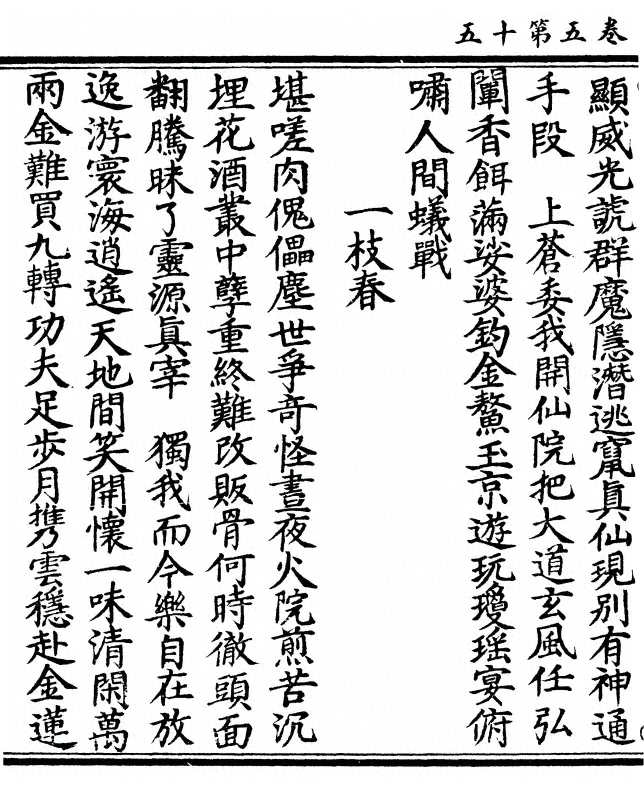 卷五第十五
顯威光諕群魔隱潛逃竄眞仙現別有神通
手段　上蒼委我開仙院把大道玄風任弘
闡香餌滿娑婆釣金鰲玉京遊玩瓊瑶宴俯
嘯人間蟻戰
一枝春
堪嗟肉傀儡塵世爭竒怪晝夜火院煎苦沉
埋花酒叢中孽重終難改販骨何時徹頭面
翻騰昧了靈源眞宰　獨我而今樂自在放
逸游寰海逍遙天地間笑開懷一味清閑萬
兩金難買九轉功夫足步月携雲穩赴金蓮